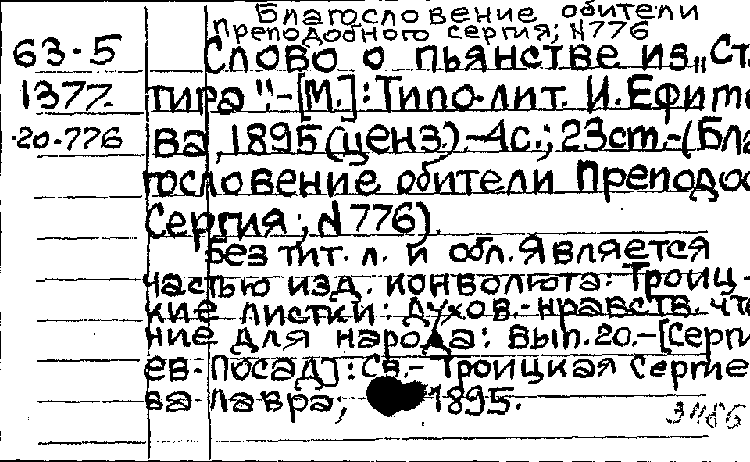 Благословение обители
Преподобного Сергия; N776
63-5 Слово о пьянстве из „Ст
1377. тира".-[М.]: Типо-лит. И. Ефимо
20-776 ва, 1895 (ценз.).-4с.; 23см.-(Бла
гословение обители Преподо
Сергия; N776).
Без тит. л. и обл. Является
частью изд. конволюта: Троиц-
кие листки: Духов.-нравств. чте
ние для народа: Вып.20.-[Серги
ев-Посад]: Св.-Троицкая Сергие
ва лавра; 1895.
3486